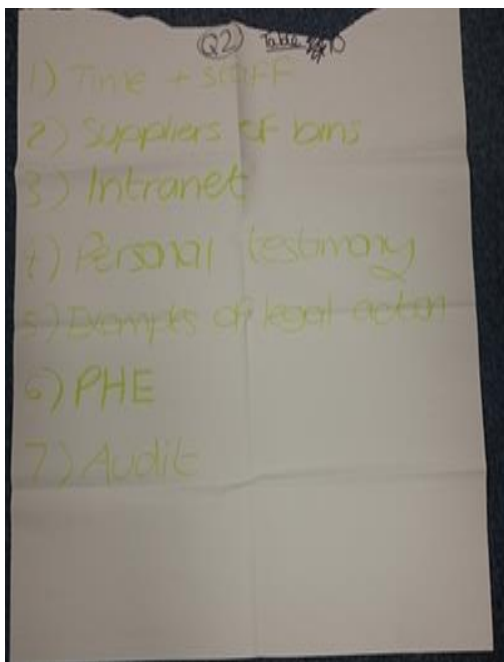 Q2) Table 10
1) Time + staff
2) Suppliers of bins
3) Intranet
4) Personal testimony
5) Examples of legal action
6) PHE
7) Audit